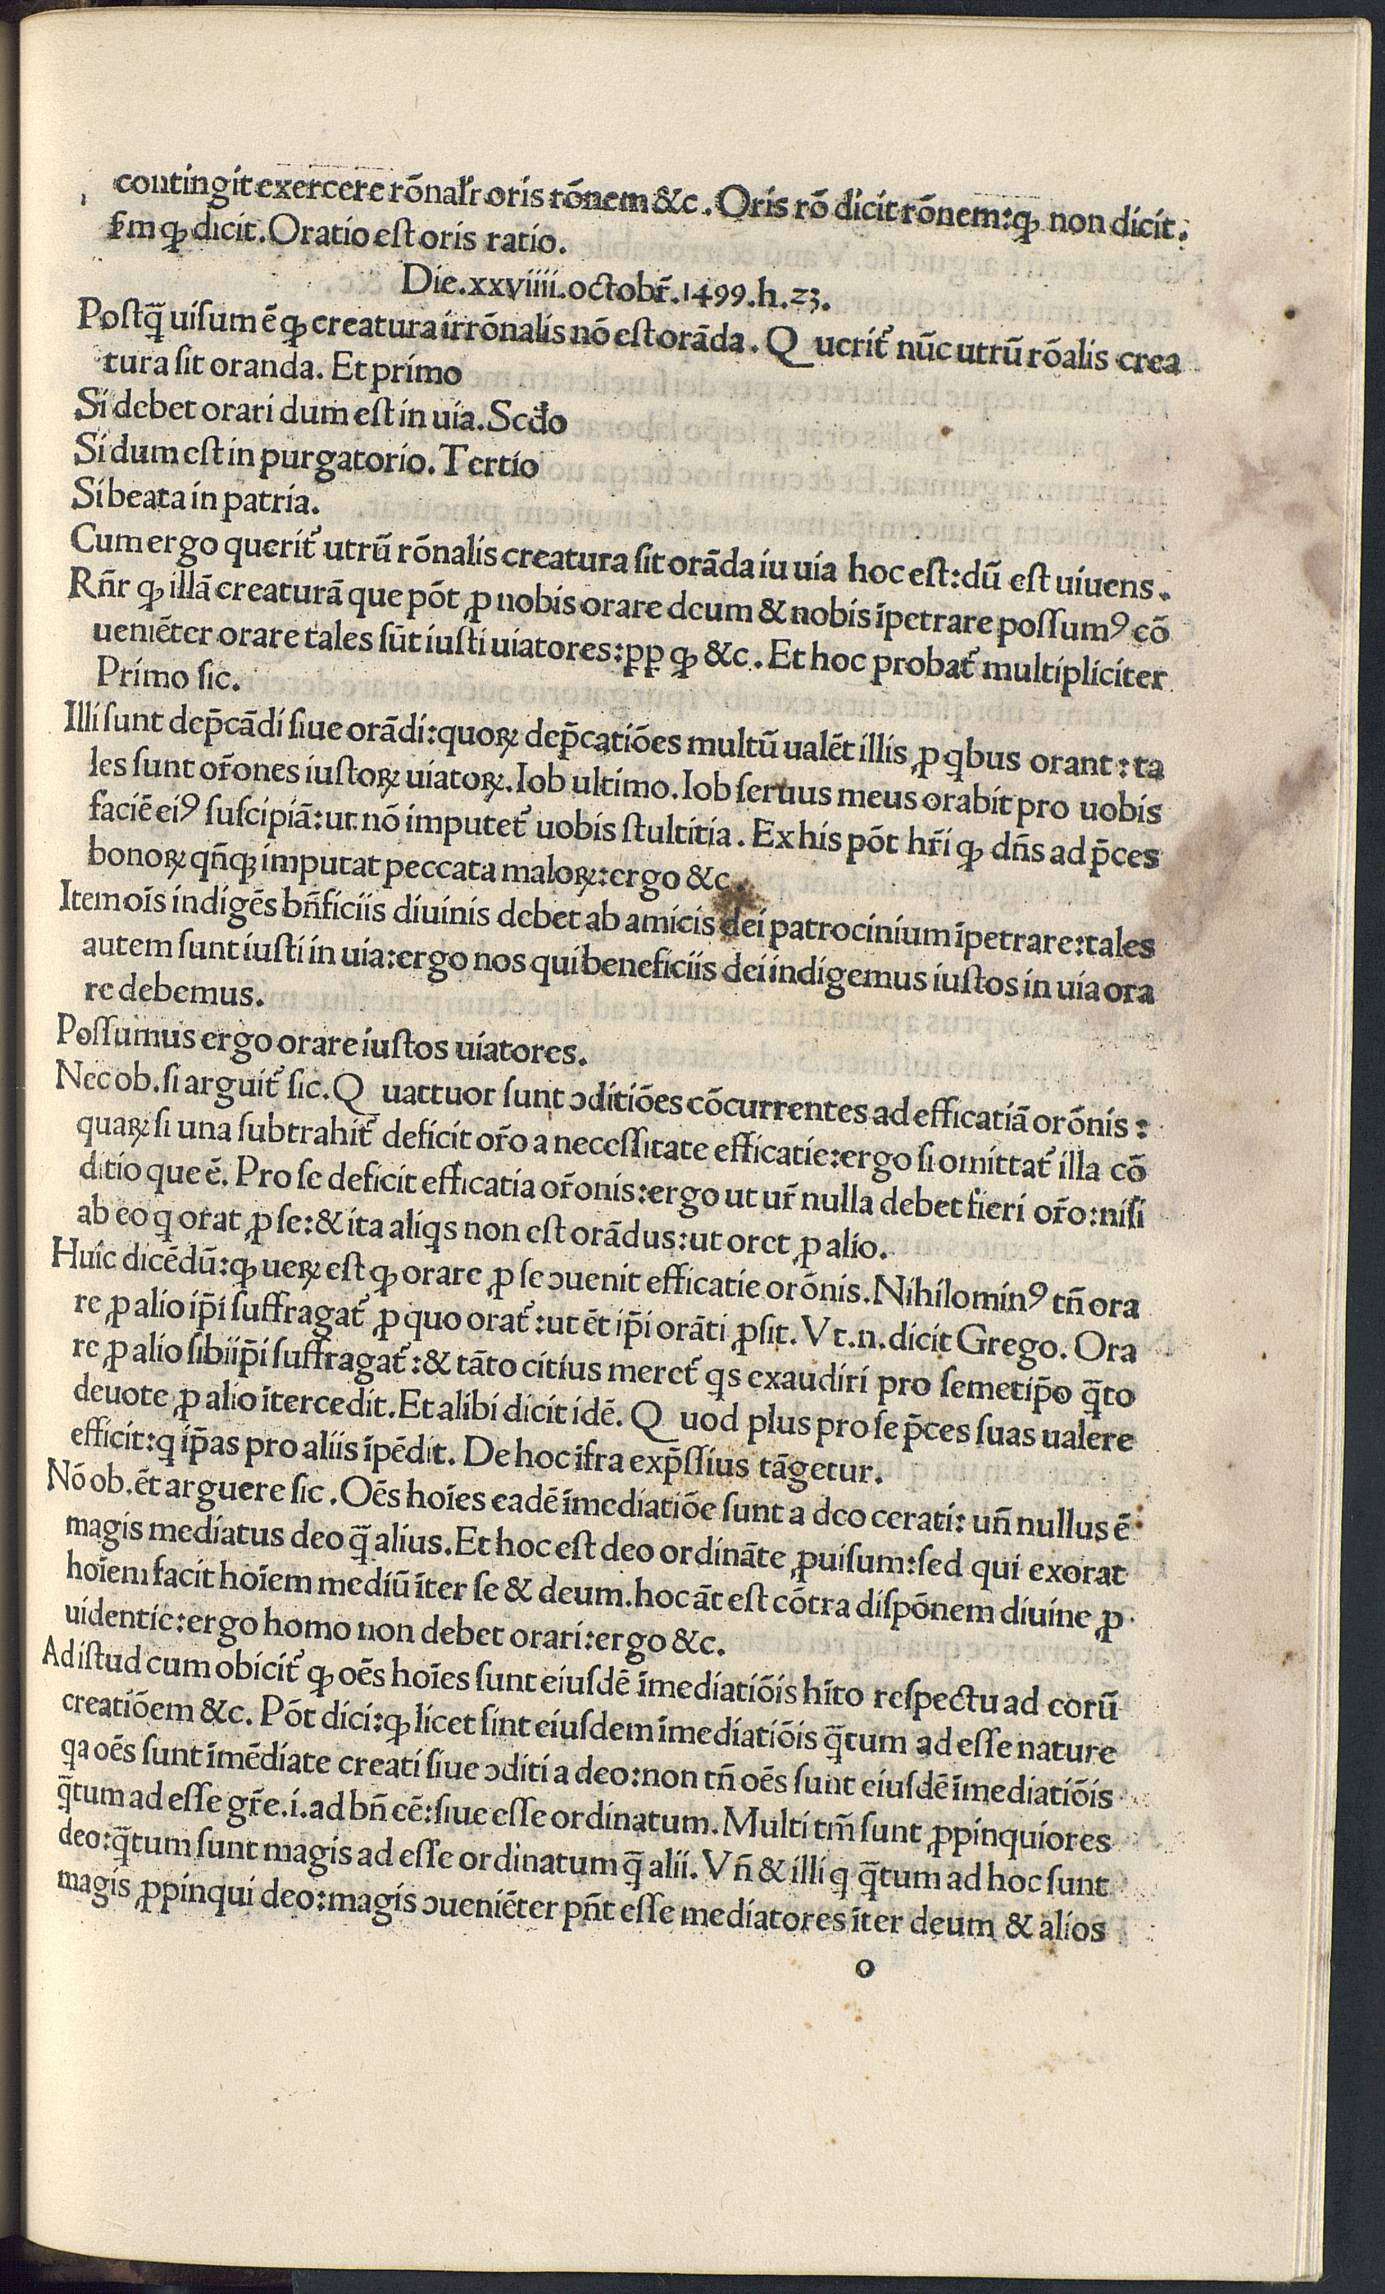 contingit exercere rōnalr̄ oris rōnem &c. Oris rō dicit rōnem: ꝙ non dicit.
ẜm ꝙ dicit. Oratio eſt oris ratio.
Die. xxviiii. octobr̄. 1499. h. 23.
Poſtq̄ uiſum ē ꝙ creatura irrōnalis nō eſt orāda. Q uerit᷑ nūc utrū rōalis crea
tura ſit oranda. Et primo
Si debet orari dum eſt in uia. Scd̄o
Si dum eſt in purgatorio. Tertio
Si beata in patria.
Cum ergo querit᷑ utrū rōnalis creatura ſit orāda iu uia hoc eſt: dū eſt uiuens.
Rn̄r ꝙ illā creaturā que pōt ꝓ nobis orare deum & nobis īpetrare poſſumꝰ cō
ueniēter orare tales ſūt iuſti uiatores: ꝓꝑ ꝙ &c. Et hoc probat᷑ multipliciter
Primo ſic.
Illi ſunt dep̄cādi ſiue orādi: quoꝝ dep̄catiōes multū ualēt illis, ꝓ qbus orant: ta
les ſunt or̄ones iuſtoꝝ uiatoꝝ. Iob ultimo. Iob ſeruus meus orabit pro uobis
faciē eiꝰ ſuſcipiā: ut nō imputet᷑ uobis ſtultitia. Ex his pōt hr̄i ꝙ dn̄s ad p̄ces
bonoꝝ qn̄qꝫ imputat peccata maloꝝ: ergo &c.
Item oīs indigēs bn̄ficiis diuinis debet ab amicis dei patrocinium īpetrare: tales
autem ſunt iuſti in uia: ergo nos qui beneficiis dei indigemus iuſtos in uia ora
re debemus.
Poſſumus ergo orare iuſtos uiatores.
Nec ob. ſi arguit᷑ ſic. Q uattuor ſunt ↄditiōes cōcurrentes ad efficatiā orōnis:
quaꝝ ſi una ſubtrahit᷑ deficit or̄o a neceſſitate efficatie: ergo ſi omittat᷑ illa cō
ditio que ē. Pro ſe deficit efficatia or̄onis: ergo ut ur̄ nulla debet fieri or̄o: niſi
ab eo q orat ꝓ ſe: & ita aliqs non eſt orādus: ut oret ꝓ alio.
Huic dicēdū: ꝙ ueꝝ eſt ꝙ orare ꝓ ſe ↄuenit efficatie orōnis. Nihilominꝰ tn̄ ora
re ꝓ alio ip̄i ſuffragat᷑ ꝓ quo orat᷑: ut ēt ip̄i orāti ꝓſit. Vt. n. dicit Grego. Ora
re ꝓ alio ſibiip̄i ſuffragat᷑: & tāto citius meret᷑ qs exaudiri pro ſemetip̄o q̄to
deuote ꝓ alio ītercedit. Et alibi dicit idē. Q uod plus pro ſe p̄ces ſuas ualere
efficit: q ip̄as pro aliis īpēdit. De hoc īfra exp̄ſſius tāgetur.
Nō ob. ēt arguere ſic. Oēs hoīes eadē īmediatiōe ſunt a deo cerati: un̄ nullus ē
magis mediatus deo q̄ alius. Et hoc eſt deo ordināte ꝓuiſum: ſed qui exorat
hoīem facit hoīem mediū īter ſe & deum. hoc āt eſt cōtra diſpōnem diuine ꝓ
uidentie: ergo homo non debet orari: ergo &c.
Ad iſtud cum obicit᷑ ꝙ oēs hoīes ſunt eiuſdē īmediatiōis hīto reſpectu ad eorū
creatiōem &c. Pōt dici: ꝙ licet ſint eiuſdem īmediatiōis q̄tum ad eſſe nature
qa oēs ſunt īmēdiate creati ſiue ↄditi a deo: non tn̄ oēs ſunt eiuſdē īmediatiōis
q̄tum ad eſſe gr̄e. i. ad bn̄ eē: ſiue eſſe ordinatum. Multi tm̄ ſunt ꝓpinquiores
deo: q̄tum ſunt magis ad eſſe ordinatum q̄ alii. Vn̄ & illi q q̄tum ad hoc ſunt
magis ꝓpinqui deo: magis ↄueniēter pn̄t eſſe mediatores īter deum & alios
o